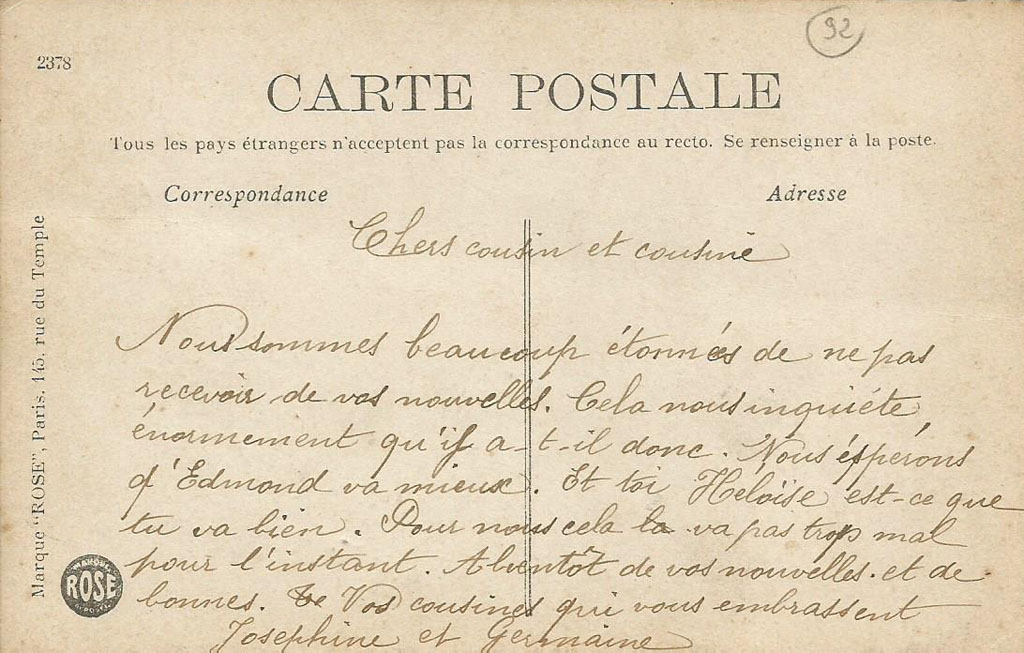 92
2378
CARTE POSTALE
Tous les pays étrangers n'acceptent pas la correspondance au recto. Se renseigner à la poste.
Correspondance
Adresse
Chers cousin et cousine
Nous sommes beaucoup étonnés de ne pas
recevoir de vos nouvelles. Cela nous inquiéte
énormement qu'il a-t-il donc. Nous éspérons
q' Edmond va mieux. Et toi Heloïse est-ce que
tu va bien. Pour nous cela la va pas trop mal
pour l'instant. A bientôt de vos nouvelles. et de
bonnes. Vos cousines qui vous embrassent
Josephine et Germaine
Marque "ROSE", Paris. 145, rue du Temple
MARQUE
ROSE